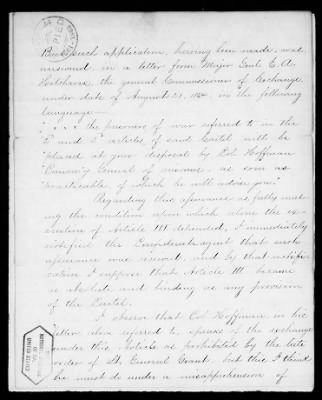 But such application, having been made, was
answered in a letter from Major Genl E. A.
Hitchcock, the general Commissioner of Exchange
under date of August 21, 1864 in the following
language—
" . . . . the prisoners of war referred to in the
2d and 3d articles of said Cartel will be
"placed at your disposal by Col Hoffman
Comsary General of prisoners, as soon as
"practicable of which he will advise you."
Regarding this assurance as fully meet-
ing the condition upon which alone the ex-
ecution of Article III depended, I immediately
notified the Confederate agent that such
assurance was received, and by that notifi-
cation I suppose that Article III became
as absolute and binding as any provision
of the Cartel.
I observe that Col Hoffman, in his
letter above referred to, speaks of the exchange
under this Article as prohibited by the late
order of Lt. General Grant, but this I think
he must do under a misapprehension of